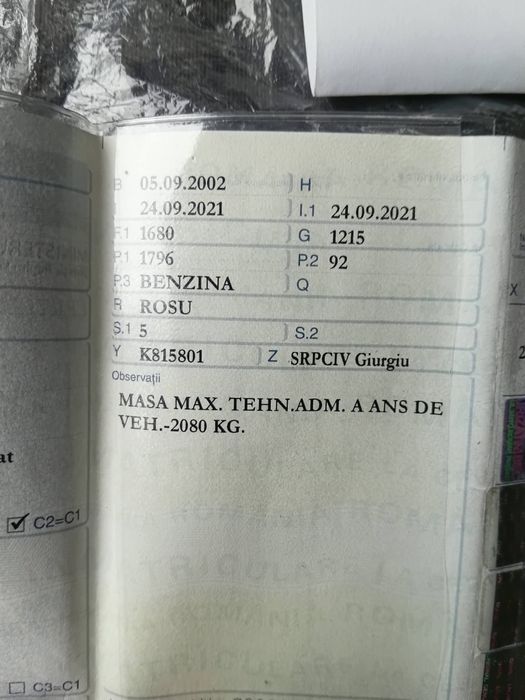 B 05.09.2002 H
I 24.09.2021 I.1 24.09.2021
F.1 1680 G 1215
P.1 1796 P.2 92
P.3 BENZINA Q
R ROSU
S.1 5 S.2
Y K815801 Z SRPCIV Giurgiu
Observații
MASA MAX. TEHN.ADM. A ANS DE
VEH.-2080 KG.
at
C2=C1
C3=C1
X
2